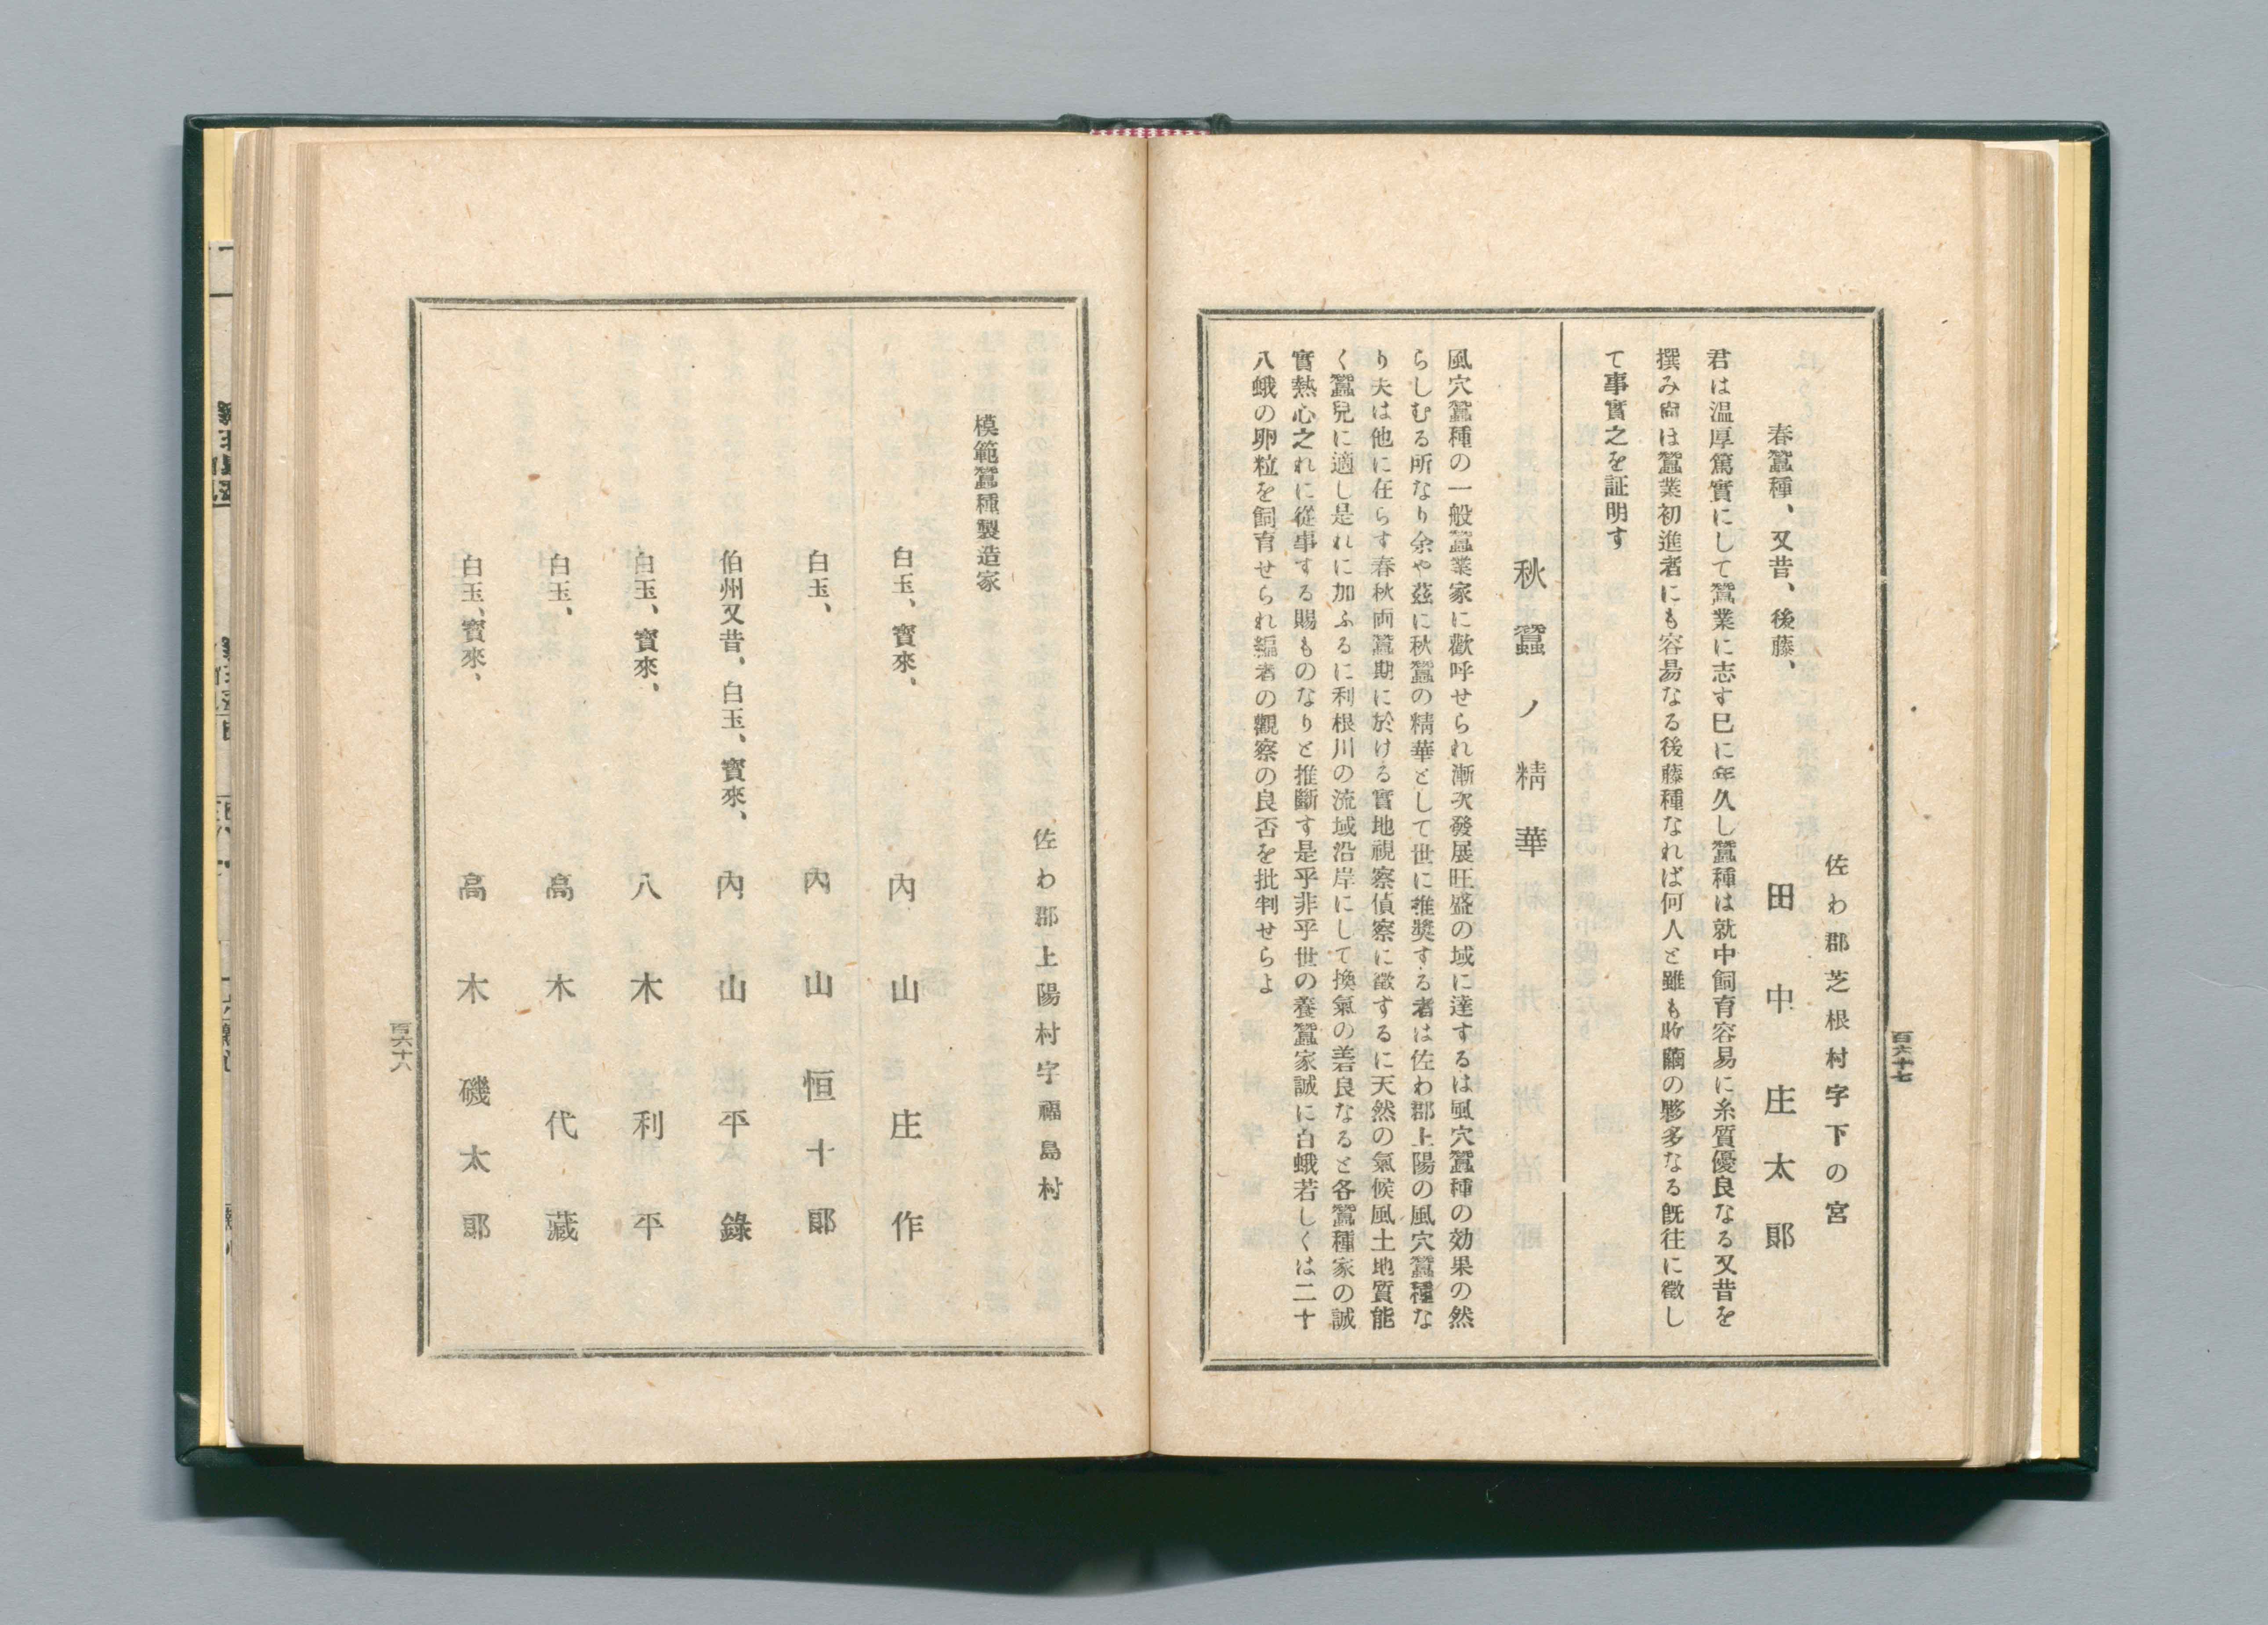 百六十七
佐わ郡芝根村字下の宮
春蠶種、又昔、後藤、 田中庄太郎
君は温厚篤實にして蠶業に志す巳に年久し蠶種は就中飼育容易に糸質優良なる又昔を
撰み尙は蠶業初進者にも容易なる後藤種なれば何人と雖も收繭の夥多なる既往に徵し
て事實之を証明す
秋蠶ノ精華
風穴蠶種の一般蠶業家に歡呼せられ漸次發展旺盛の域に達するは風穴蠶種の効果の然
らしむる所なり余や茲に秋蠶の精華として世に推奬する者は佐わ郡上陽の風穴蠶種な
り夫は他に在らす春秋両蠶期に於ける實地視察偵察に徵するに天然の氣候風土地質能
く蠶兒に適し是れに加ふるに利根川の流域沿岸にして換氣の善良なると各蠶種家の誠
實熱心之れに從事する賜ものなりと推斷す是乎非乎世の養蠶家誠に白蛾若しくは二十
八蛾の卵粒を飼育せられ編者の觀察の良否を批判せらよ
佐わ郡上陽村字福島村
模範蠶種製造家
白玉、寳來、 內山庄作
白玉、 內山恒十郞
伯州又昔、白玉、寳來、 內山平錄
白玉、寳來、 八木利平
白玉、 高木代藏
白玉、寳來、 高木磯太郞
百六十八